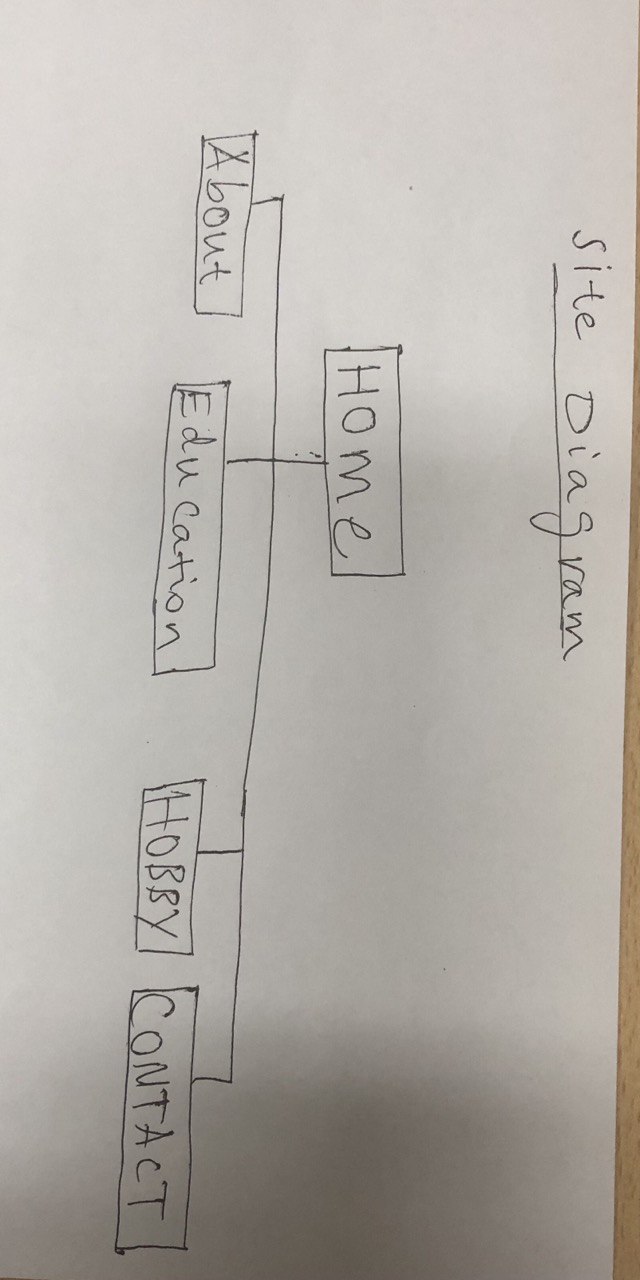 Site Diagram
Home
About
Education
HOBBY
CONTACT